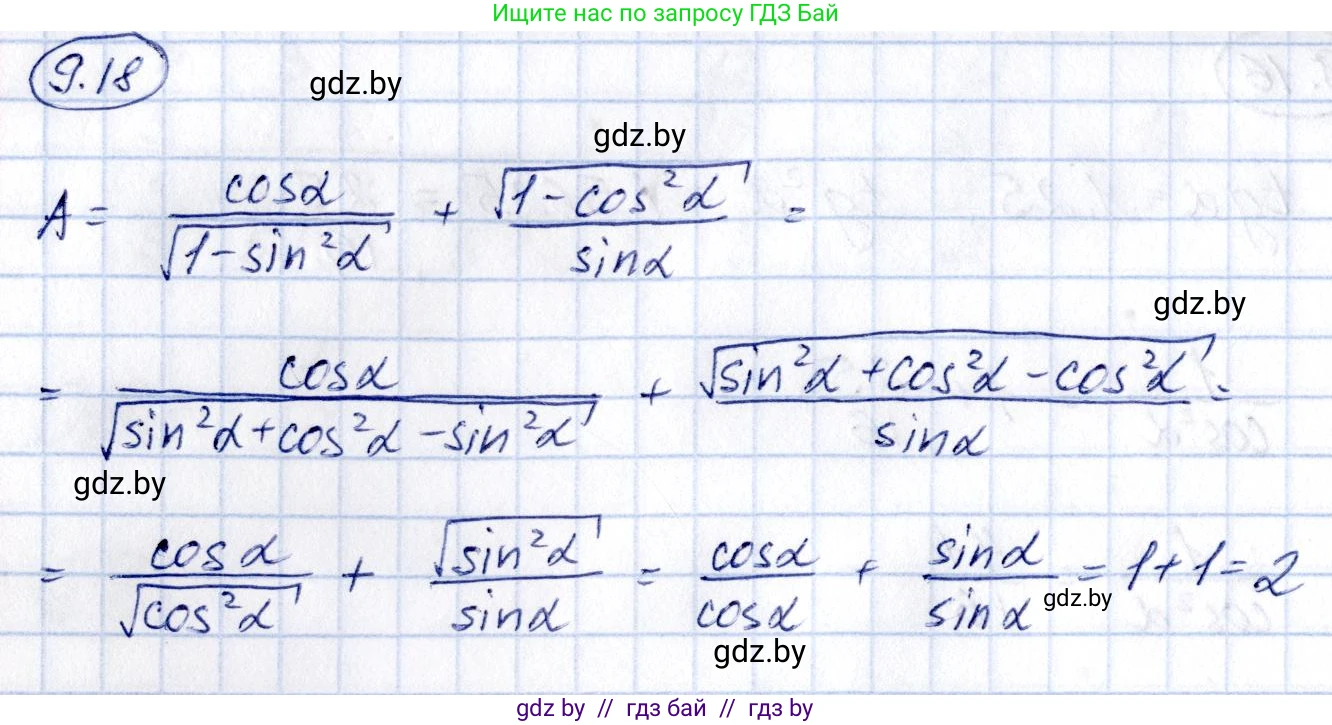 Ищите нас по запросу ГДЗ Бай
9.18
gdz.by
gdz.by
A = cosα / √(1 - sin²α) + √(1 - cos²α) / sinα =
gdz.by
= cosα / √(sin²α + cos²α - sin²α) + √(sin²α + cos²α - cos²α) / sinα =
gdz.by
= cosα / √(cos²α) + √(sin²α) / sinα = cosα / cosα + sinα / sinα = 1 + 1 = 2
gdz.by
gdz.by
gdz by // гдз бай // гдз by